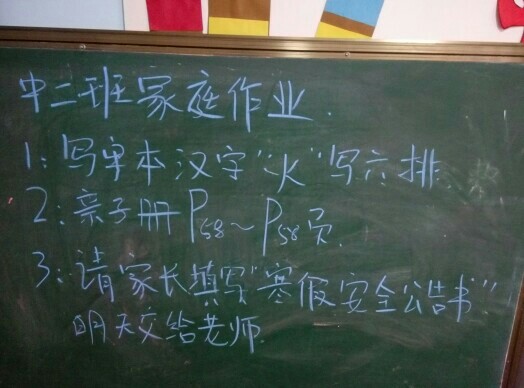 中二班家庭作业.
1:写单本汉字"火"写六排
2:亲子册P58~P58页.
3:请家长填写"寒假安全公告书"
明天交给老师.